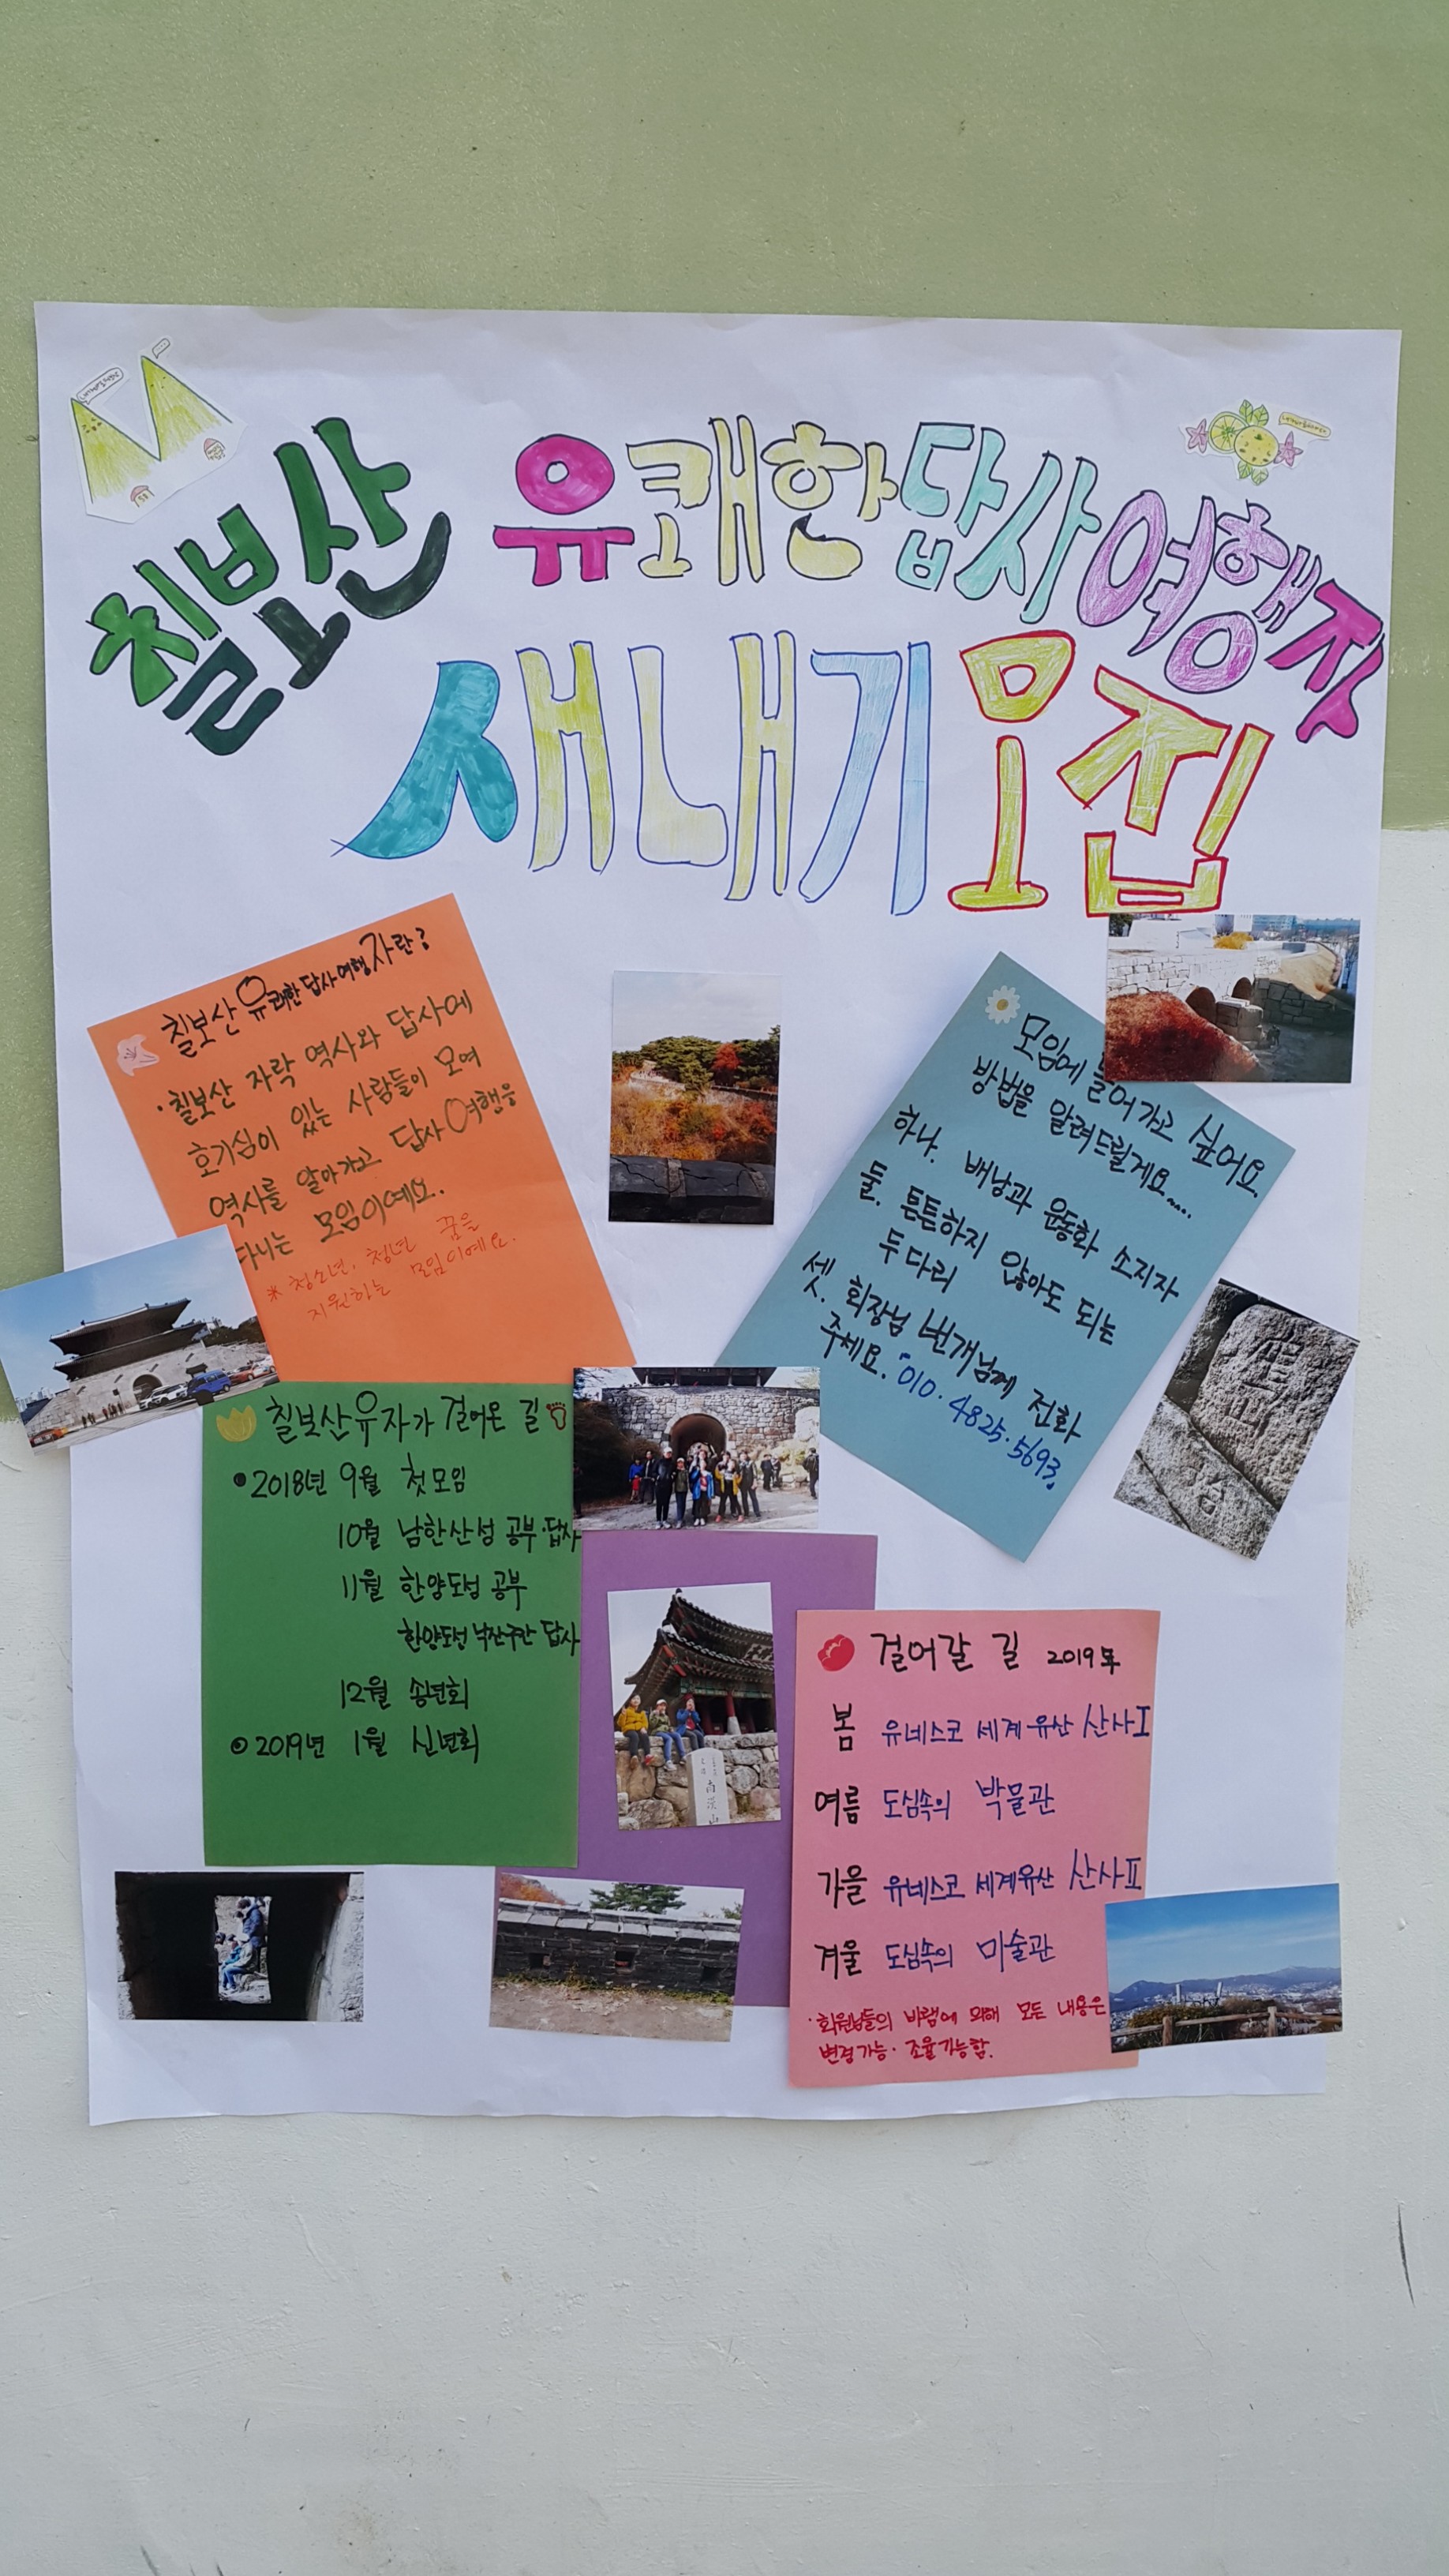 칠보산 유쾌한 답사 여행자
새내기 모집
칠보산 유쾌한 답사 여행자란?
·칠보산 자락 역사와 답사에
호기심이 있는 사람들이 모여
역사를 알아가고 답사여행을
다니는 모임이예요.
* 청소년, 청년 꿈을
지원하는 모임이예요.
모임에 들어가고 싶어요
방법을 알려드릴게요.....
하나. 배낭과 운동화 소지자
둘. 튼튼하지 않아도 되는
두다리
셋. 회장님 번개님께 전화
주세요. 010.4825.5693
칠보산유자가 걸어온 길
2018년 9월 첫모임
10월 남한산성 공부·답사
11월 한양도성 공부
한양도성 낙산구간 답사
12월 송년회
2019년 1월 신년회
걸어갈 길 2019年
봄 유네스코 세계유산 산사Ⅰ
여름 도심속의 박물관
가을 유네스코 세계유산 산사Ⅱ
겨울 도심속의 미술관
·회원님들의 바램에 의해 모든 내용은
변경가능·조율가능함.